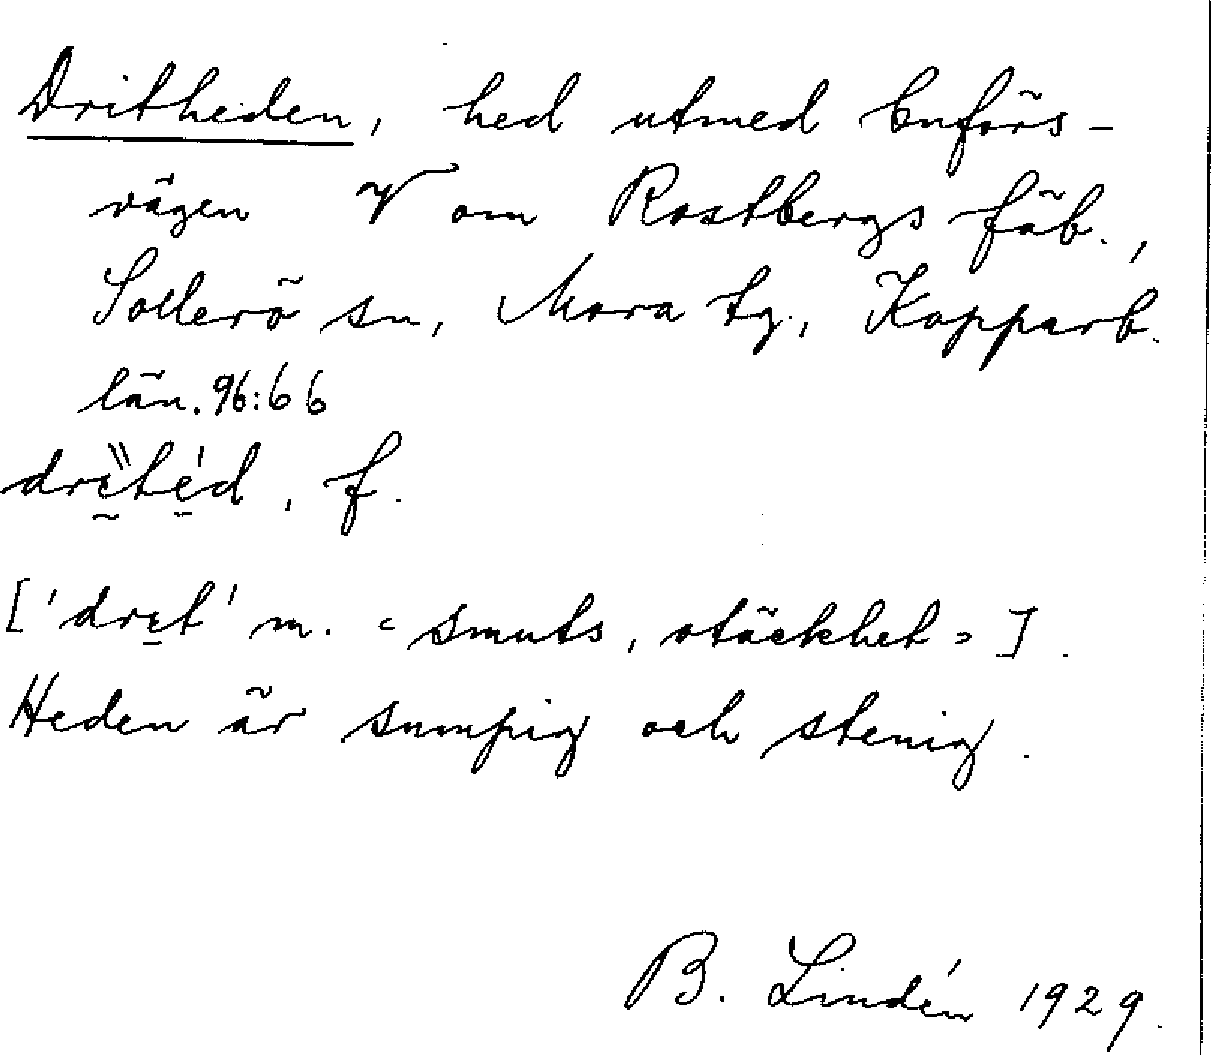 Dritheden, hed utmed buförs-
vägen V om Rostbergs fäb.,
Sollerö sn, Mora tg., Kopparb.
län. 96:66
dritèd, f.
['drit' m. "smuts, otäckhet"].
Heden är sumpig och stenig.
B. Lindén 1929.